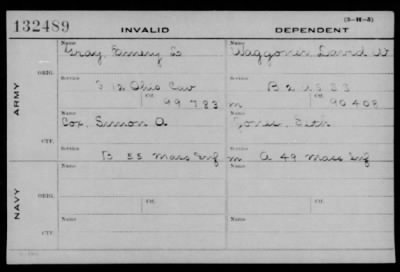 132489 INVALID DEPENDENT (3-H-5)
ARMY
ORIG.
Name Name
Gray, Emery Waggoner, David W
Service Service
12 Ohio Cav B 2 U S S S
Of. Of.
99 783 m 90 408
CTF.
Name Name
Cox, Simon A Jones, Seth
Service Service
B 55 Mass Inf m A 49 Mass Inf
NAVY
ORIG.
Name Name
Service Service
Of. Of.
CTF.
Name Name